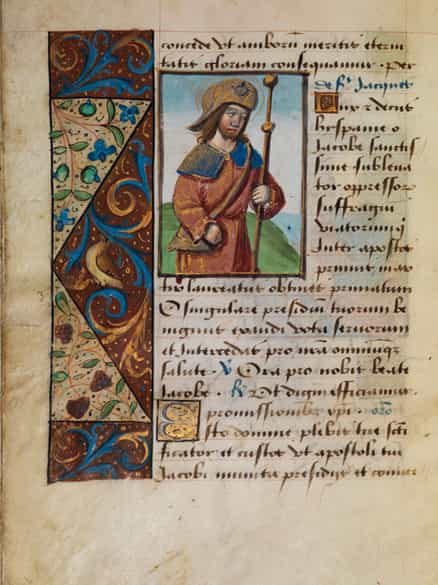 concede vt amborum meritis eterni
tatis gloriam consequamur · per
de st Jacques
Lux et decus
hyspanie o
Jacobe sanctis
sime subleua
tor oppressorum
suffragium
viatorum qui
Inter apostolos
primus mar
tirio laureatus obtines primatum
O singulare presidium tuorum be
nignius exaudi vota seruorum
et Intercedas pro nostra omniumque
salute · V Ora pro nobis beate
Jacobe · R Vt digni efficiamur ·
promissionibus xpi · oro
Esto domine plebis tue scti
ficator et custos vt apostoli tui
Jacobi munita presidiis et conuer